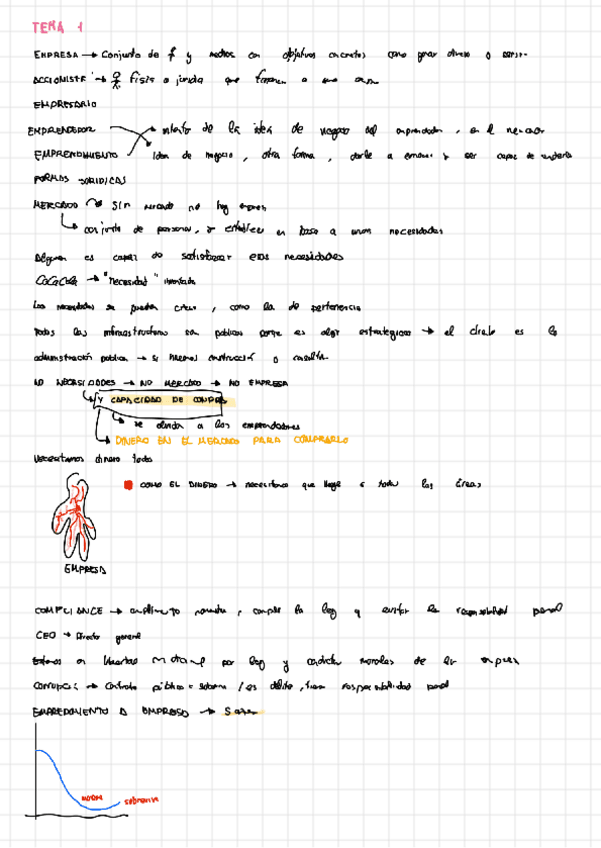 TEMA 1
EMPRESA → Conjunto de y medios con objetivos concretos como ganar dinero o
ACCIONISTA → física o jurídica que forman
EMPRESARIO
EMPRENDEDOR intento de la idea de negocio del emprendedor, en el mercado
EMPRENDIMIENTO Idea de negocio, otra forma, darle a ser capaz de
FORMAS JURIDICAS
MERCADO → Sin mercado no hay empresa
conjunto de personas, se establece en base a unas necesidades
Alguien es capaz de satisfacer esas necesidades
CocaCola → "necesidad" inventada
Las necesidades se pueden crear, como la de pertenencia
Todas las infraestructuras son públicas porque es algo estratégico → el cliente es la
administración pública → si construcción o
NO NECESIDADES → NO MERCADO → NO EMPRESA
Y CAPACIDAD DE COMPRA
se olvida a los emprendedores
DINERO EN EL MERCADO PARA COMPRARLO
Necesitamos dinero todo
COMO EL DINERO → necesitamos que llegue a todas las áreas
EMPRESA
COMPLIANCE → cumplimiento, cumplir la ley y evitar la responsabilidad penal
CEO → Director general
por ley y morales de la empresa
Corrupción → Contrato público = soborno / es delito, tiene responsabilidad penal
EMPREDIMIENTO A EMPRESA →
muere sobrevive